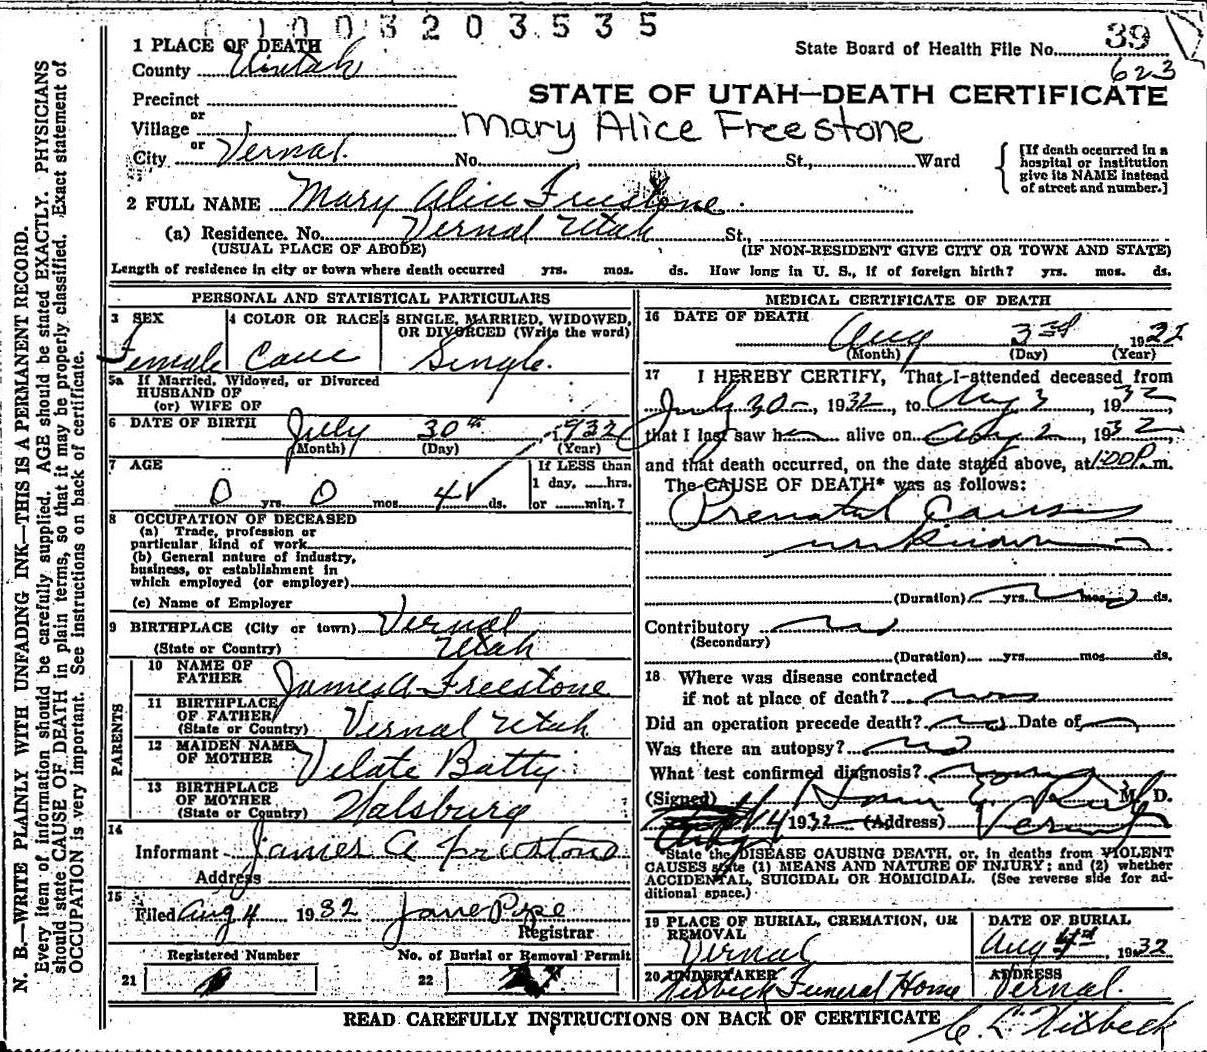 01003203535
1 PLACE OF DEATH
State Board of Health File No. 39
623
County Uintah
Precinct
STATE OF UTAH—DEATH CERTIFICATE
or
Village
Mary Alice Freestone
or
City Vernal. No. ; St., Ward
[If death occurred in a hospital or institution give its NAME instead of street and number.]
2 FULL NAME Mary Alice Freestone.
(a) Residence. No. Vernal Utah St.,
(USUAL PLACE OF ABODE) (IF NON-RESIDENT GIVE CITY OR TOWN AND STATE)
Length of residence in city or town where death occurred yrs. mos. ds. How long in U. S., if of foreign birth? yrs. mos. ds.
PERSONAL AND STATISTICAL PARTICULARS
3 SEX 4 COLOR OR RACE 5 SINGLE, MARRIED, WIDOWED, OR DIVORCED (Write the word)
Female Cauc Single.
5a If Married, Widowed, or Divorced
HUSBAND OF
(or) WIFE OF
6 DATE OF BIRTH July 30th, 1932
(Month) (Day) (Year)
7 AGE If LESS than
1 day, ......hrs.
0 yrs. 0 mos. 4 ds. or ......min.?
8 OCCUPATION OF DECEASED
(a) Trade, profession or
particular kind of work
(b) General nature of industry,
business, or establishment in
which employed (or employer)
(c) Name of Employer
9 BIRTHPLACE (City or town) Vernal
(State or Country) Utah
PARENTS
10 NAME OF
FATHER James A Freestone
11 BIRTHPLACE
OF FATHER
(State or Country) Vernal Utah
12 MAIDEN NAME
OF MOTHER Velate Batty
13 BIRTHPLACE
OF MOTHER
(State or Country) Walsburg
14
Informant James A Freestone
Address
15
Filed Aug 4 1932 Jane Pope
Registrar
Registered Number No. of Burial or Removal Permit
21 22
MEDICAL CERTIFICATE OF DEATH
16 DATE OF DEATH
Aug 3rd 1932
(Month) (Day) (Year)
17 I HEREBY CERTIFY, That I attended deceased from
July 30, 1932, to Aug 3, 1932
that I last saw her alive on Aug 2, 1932
and that death occurred, on the date stated above, at 1:00 P. m.
The CAUSE OF DEATH* was as follows:
Prenatal Causes
unknown
(Duration) yrs. mos. ds.
Contributory no
(Secondary)
(Duration) yrs. mos. ds.
18 Where was disease contracted
if not at place of death?
Did an operation precede death? no Date of
Was there an autopsy? no
What test confirmed diagnosis?
(Signed) M. D.
Aug 4 1932 (Address) Vernal
*State the DISEASE CAUSING DEATH, or, in deaths from VIOLENT
CAUSES state (1) MEANS AND NATURE OF INJURY; and (2) whether
ACCIDENTAL, SUICIDAL OR HOMICIDAL. (See reverse side for ad-
ditional space.)
19 PLACE OF BURIAL, CREMATION, OR REMOVAL DATE OF BURIAL
Vernal Aug 4th, 1932
20 UNDERTAKER ADDRESS
Funeral Home Vernal.
READ CAREFULLY INSTRUCTIONS ON BACK OF CERTIFICATE
N. B.—WRITE PLAINLY WITH UNFADING INK—THIS IS A PERMANENT RECORD.
Every item of information should be carefully supplied. AGE should be stated EXACTLY. PHYSICIANS
should state CAUSE OF DEATH in plain terms, so that it may be properly classified. Exact statement of
OCCUPATION is very important. See instructions on back of certificate.